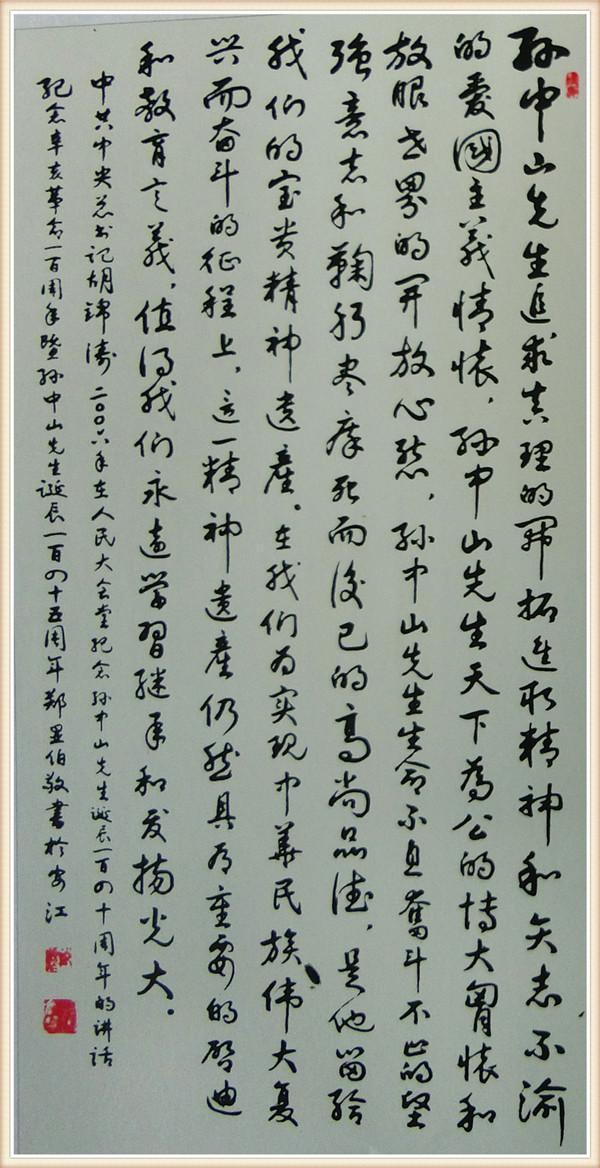 孙中山先生追求真理的开拓进取精神和矢志不渝
的爱國主義情怀，孙中山先生天下為公的博大胸怀和
放眼世界的开放心態，孙中山先生生命不息奮斗不止的堅
強意志和鞠躬尽瘁死而後已的高尚品德，是他留给
我们的宝贵精神遗産。在我们为实现中華民族伟大复
兴而奋斗的征程上，这一精神遗産仍然具有重要的启迪
和教育意義，值得我们永远学習继承和发扬光大。
中共中央总书记胡錦涛二〇〇六年在人民大会堂纪念孙中山先生诞辰一百四十周年的讲话
纪念辛亥革命一百周年暨孙中山先生诞辰一百四十五周年鄭 伯敬書於 江